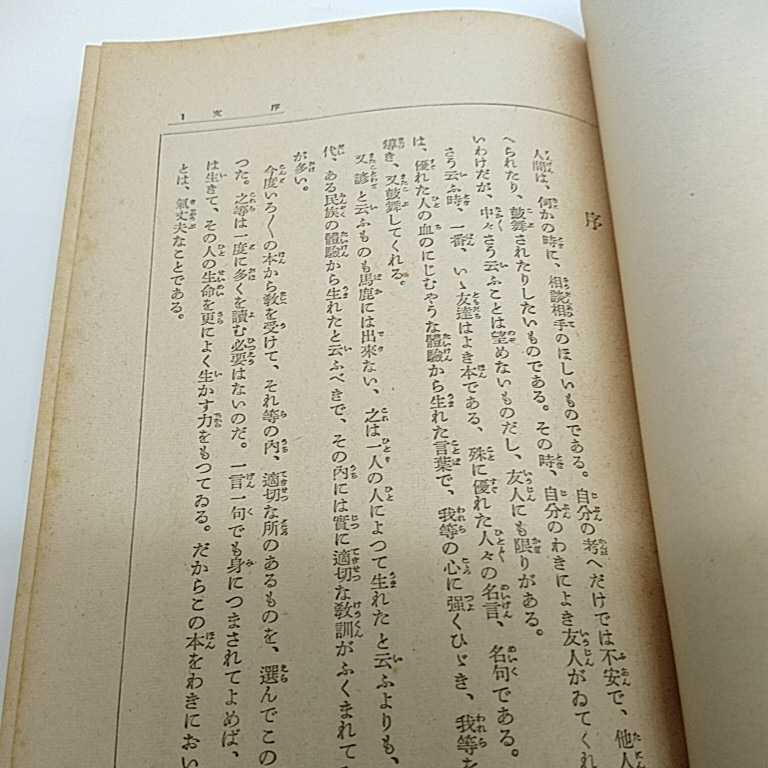 序文 1
序
人間は、何かの時に、相談相手のほしいものである。自分の考へだけでは不安で、他人
へられたり、鼓舞されたりしたいものである。その時、自分のわきによき友人がゐてくれ
いわけだが、中々さう云ふことは望めないものだし、友人にも限りがある。
さう云ふ時、一番、いゝ友達はよき本である、殊に優れた人々の名言、名句である。
は、優れた人の血のにじむやうな體驗から生れた言葉で、我等の心に强くひゞき、我等を
導き、又鼓舞してくれる。
又諺と云ふものも馬鹿には出來ない、之は一人の人によつて生れたと云ふよりも、
代、ある民族の體驗から生れたと云ふべきで、その内には實に適切な敎訓がふくまれて
が多い。
今度いろ〳〵の本から敎を受けて、それ等の内、適切な所のあるものを、選んでこの
つた。之等は一度に多くを讀む必要はないのだ。一言一句でも身につまされてよめば、
は生きて、その人の生命を更によく生かす力をもつてゐる。だからこの本をわきにおい
とは、氣丈夫なことである。